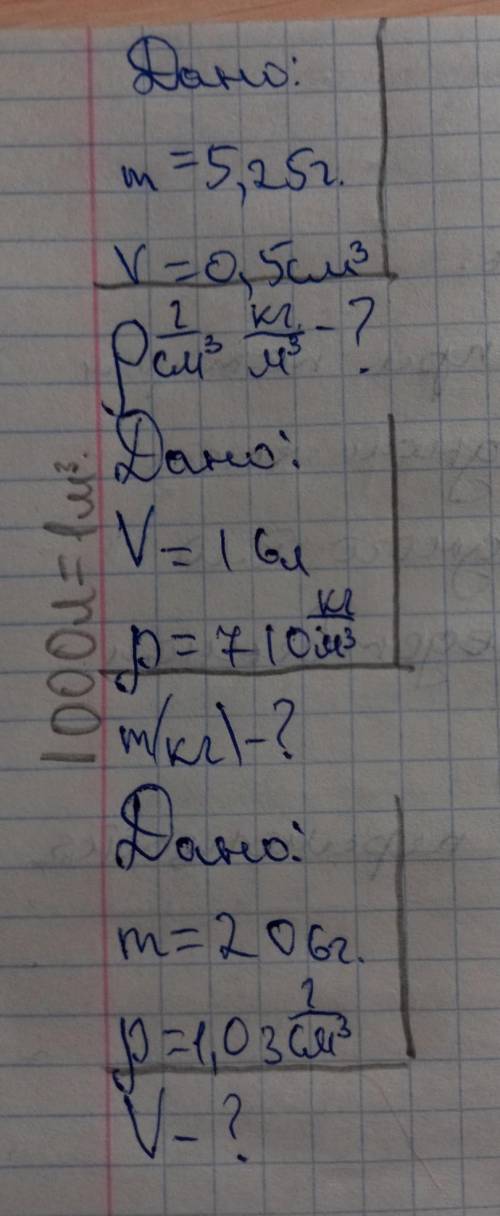 Дано:
m = 5,25г.
V = 0,5см³
ρ г/см³ кг/м³ - ?
Дано:
V = 16л
ρ = 710 кг/м³
m(кг) - ?
Дано:
m = 206г.
ρ = 1,03 г/см³
V - ?
1000л = 1м³.